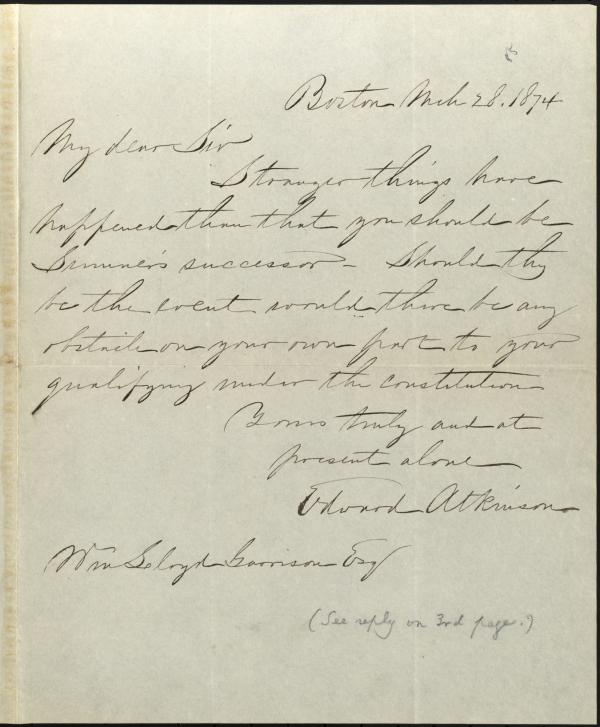 Boston Mch 28. 1874
My dear Sir
Stranger things have
happened than that you should be
Sumner's successor - Should this
be the event would there be any
obstacle on your own part to your
qualifying under the constitution
Yours truly and at
present alone
Edward Atkinson
Wm Lloyd Garrison Esq
(See reply on 3rd page.)